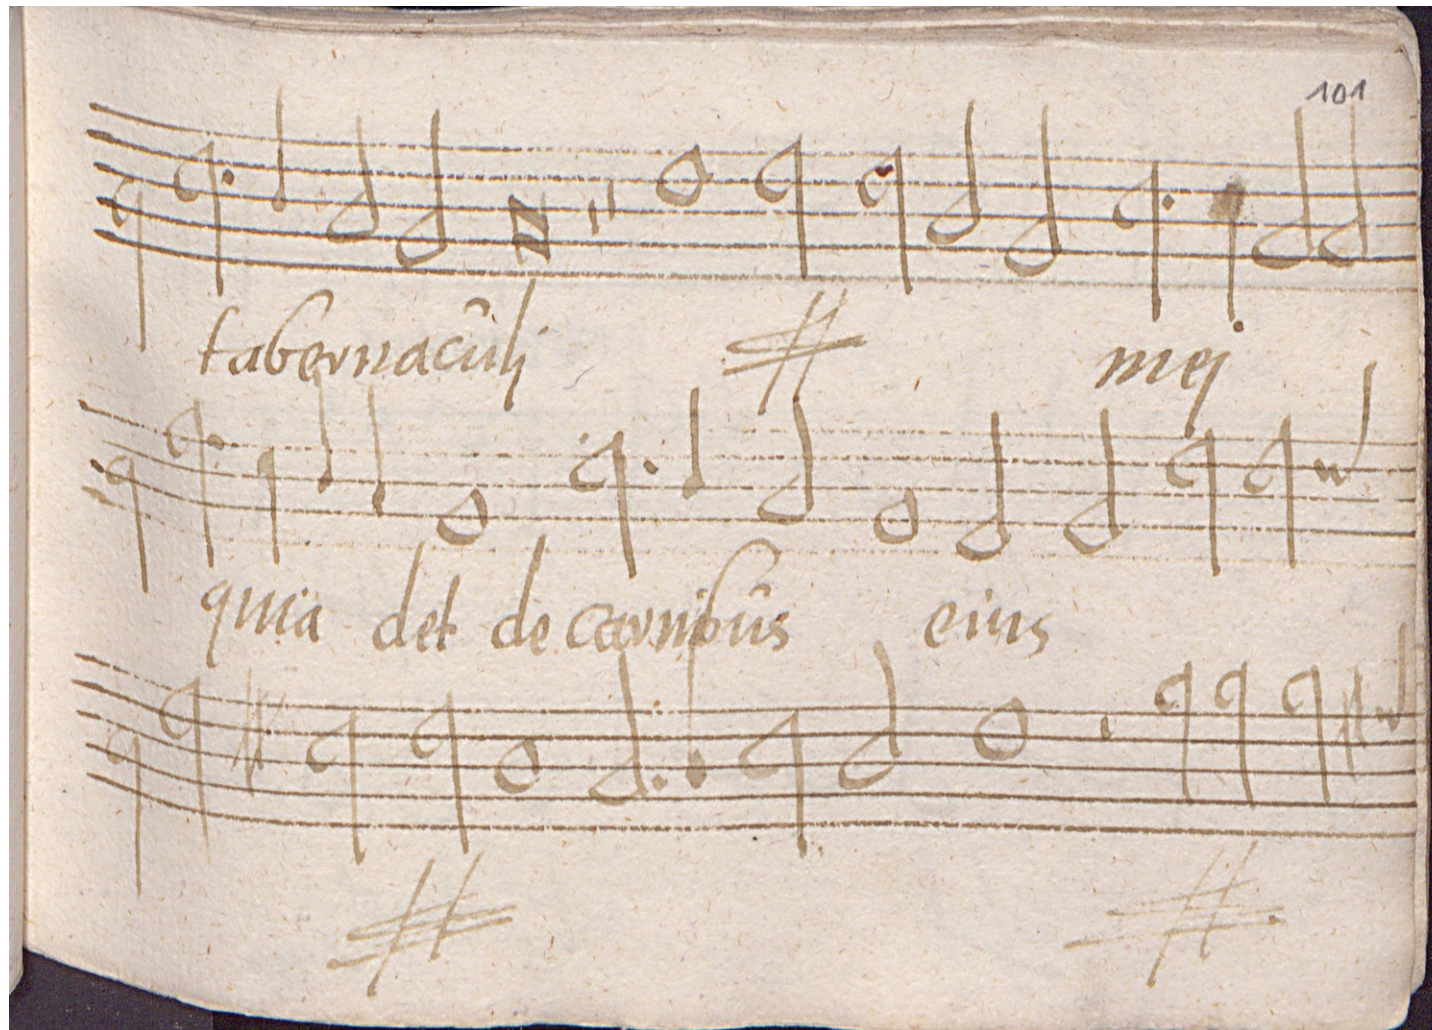 101
tabernacúlj mej
quia det de carnibús eius